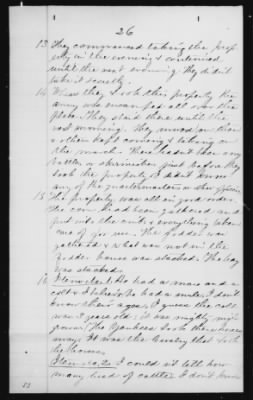 26
13 They commenced taking the prop
erty in the evening & continued
until the next evening. They didn't
take it secretly.
14 When they took this property the
army was encamped all over the
place. They staid there until the
next morning. They moved on then
& others kept coming & taking on
the march. There hadn't been any
battle or skirmish just before they
took the property. I didn't know
any of the quartermasters or other officers.
15 The property was all in good order.
The corn had been gathered and
put into the crib & everything
one of for use. The fodder was
gathered & what was not in the
fodder house was stacked. The hay
was stacked.
16 Item No. 1. He had a mare and a
colt & I believe he had a mule. I don't
know their ages. I guess the colt
was 2 years old; it was mighty nigh
grown. The Yankees took them
away. It was the Cavalry that took
the horses.
Item No. 2. I could not tell how
many head of cattle. I don't know
53